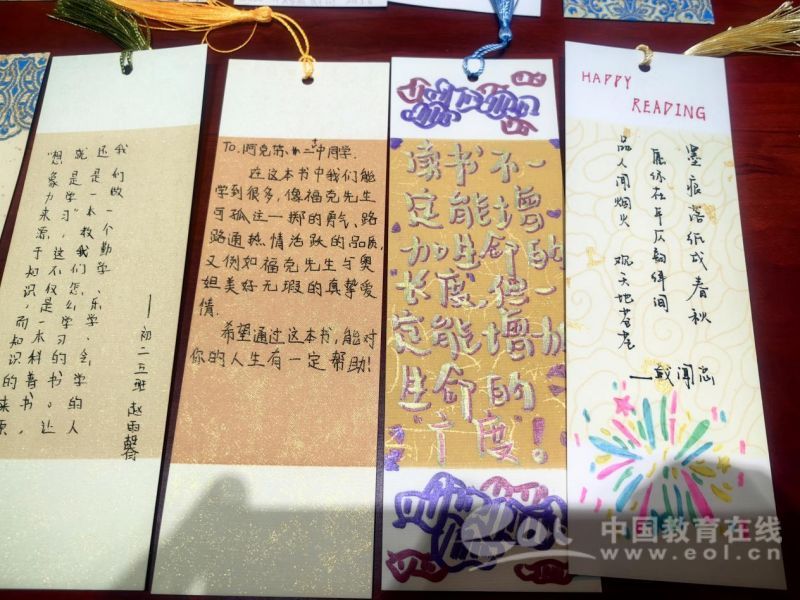 "想象力来源于知识，而知识的来源
就是学习"这不仅是一本科普书，
还是一本教我们怎么学习的书。让
我们做一个勤学、乐学、会学的人
——初二五班 赵雨
To. 阿克苏市二中同学.
在这本书中我们能
学到很多，像福克先生
可孤注一掷的勇气、路
路通热情活跃的品质，
又例如福克先生与奥
妲美好无瑕的真挚爱
情.
希望通过这本书，能对
你的人生有一定帮助!
读书不一
定能增
加生命的
"长度",但一
定能增加
生命的
"广度"!
HAPPY
READING
墨痕落纸成春秋
在平仄韵间
品人间烟火 观天地苍茫
中国教育在线
www.eol.cn